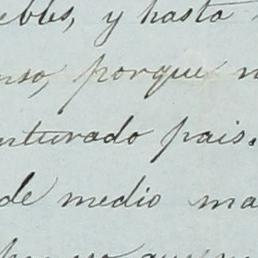 ebles, y hasta
nso, porque
nturado pais.
de medio ma